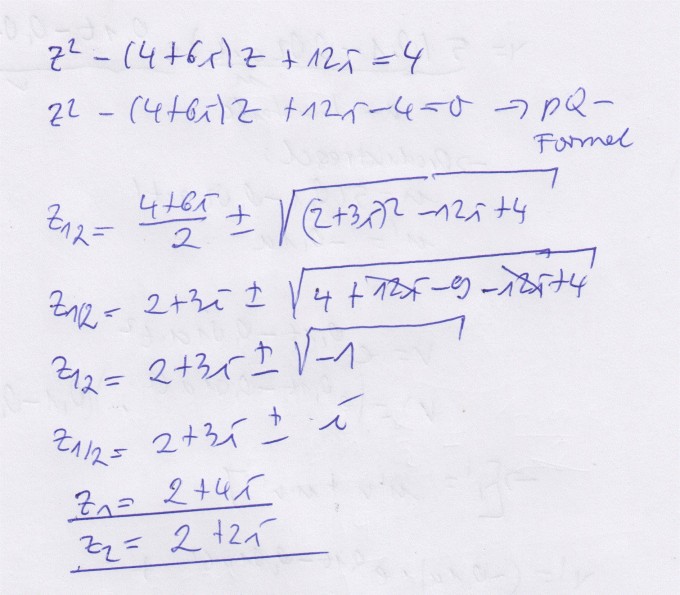 z² - (4+6i)z + 12i = 4
z² - (4+6i)z + 12i - 4 = 0 → pQ-
Formel
z₁₂ = (4+6i)/2 ± √((2+3i)² - 12i + 4)
z₁/₂ = 2+3i ± √(4 + 12i - 9 - 12i + 4)
z₁₂ = 2+3i ± √-1
z₁/₂ = 2+3i ± i
z₁ = 2+4i
z₂ = 2+2i